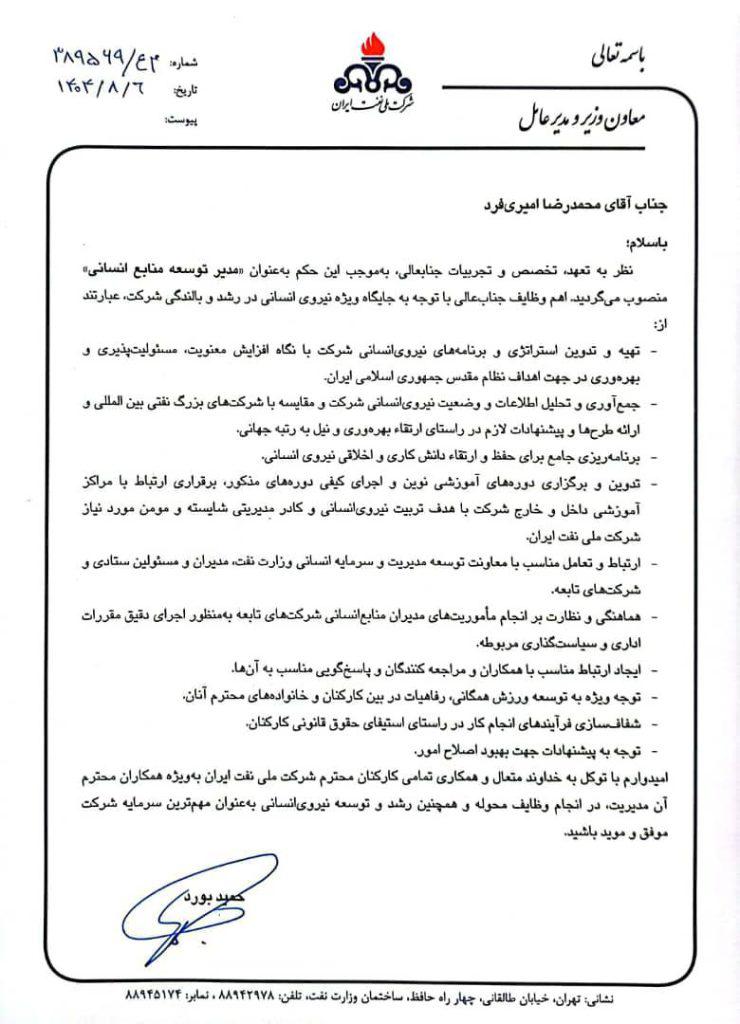 باسمه تعالی
معاون وزیر و مدیر عامل
شرکت ملی نفت ایران
شماره: ۳۸۹۵۶۹/ع۳
تاریخ: ۱۴۰۴/۸/۶
پیوست:
جناب آقای محمدرضا امیری‌فرد
باسلام؛
نظر به تعهد، تخصص و تجربیات جنابعالی، به‌موجب این حکم به‌عنوان «مدیر توسعه منابع انسانی»
منصوب می‌گردید. اهم وظایف جناب‌عالی با توجه به جایگاه ویژه نیروی انسانی در رشد و بالندگی شرکت، عبارتند
از:
- تهیه و تدوین استراتژی و برنامه‌های نیروی‌انسانی شرکت با نگاه افزایش معنویت، مسئولیت‌پذیری و
بهره‌وری در جهت اهداف نظام مقدس جمهوری اسلامی ایران.
- جمع‌آوری و تحلیل اطلاعات و وضعیت نیروی‌انسانی شرکت و مقایسه با شرکت‌های بزرگ نفتی بین المللی و
ارائه طرح‌ها و پیشنهادات لازم در راستای ارتقاء بهره‌وری و نیل به رتبه جهانی.
- برنامه‌ریزی جامع برای حفظ و ارتقاء دانش کاری و اخلاقی نیروی انسانی.
- تدوین و برگزاری دوره‌های آموزشی نوین و اجرای کیفی دوره‌های مذکور، برقراری ارتباط با مراکز
آموزشی داخل و خارج شرکت با هدف تربیت نیروی‌انسانی و کادر مدیریتی شایسته و مومن مورد نیاز
شرکت ملی نفت ایران.
- ارتباط و تعامل مناسب با معاونت توسعه مدیریت و سرمایه انسانی وزارت نفت، مدیران و مسئولین ستادی و
شرکت‌های تابعه.
- هماهنگی و نظارت بر انجام مأموریت‌های مدیران منابع‌انسانی شرکت‌های تابعه به‌منظور اجرای دقیق مقررات
اداری و سیاست‌گذاری مربوطه.
- ایجاد ارتباط مناسب با همکاران و مراجعه کنندگان و پاسخ‌گویی مناسب به آن‌ها.
- توجه ویژه به توسعه ورزش همگانی، رفاهیات در بین کارکنان و خانواده‌های محترم آنان.
- شفاف‌سازی فرآیندهای انجام کار در راستای استیفای حقوق قانونی کارکنان.
- توجه به پیشنهادات جهت بهبود اصلاح امور.
امیدوارم با توکل به خداوند متعال و همکاری تمامی کارکنان محترم شرکت ملی نفت ایران به‌ویژه همکاران محترم
آن مدیریت، در انجام وظایف محوله و همچنین رشد و توسعه نیروی‌انسانی به‌عنوان مهم‌ترین سرمایه شرکت
موفق و موید باشید.
حمید بورد
نشانی: تهران، خیابان طالقانی، چهار راه حافظ، ساختمان وزارت نفت، تلفن: ۸۸۹۴۲۹۷۸ ، نمابر: ۸۸۹۴۵۱۷۴